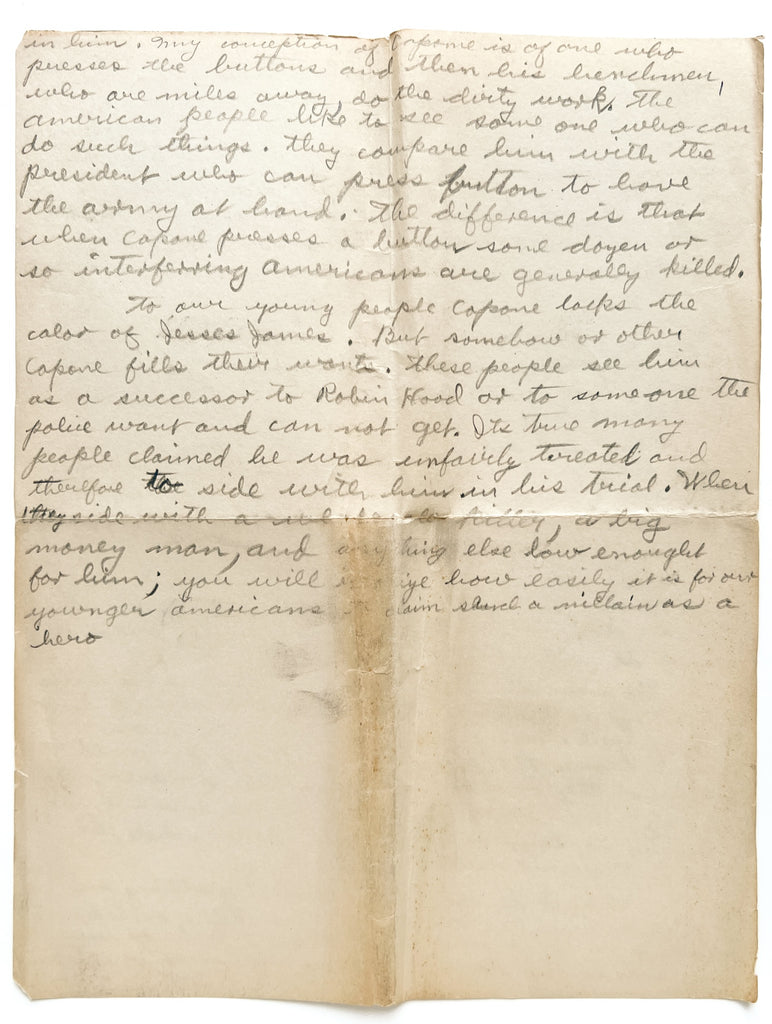 in him. My conception of Capone is of one who
presses the buttons and then his henchmen,
who are miles away, do the dirty work. The
american people like to see some one who can
do such things. They compare him with the
president who can press button to have
the army at hand. The difference is that
when Capone presses a button some dozen or
so interferring americans are generally killed.
To our young people Capone lacks the
color of Jesses James. But somehow or other
Capone fills their wants. These people see him
as a successor to Robin Hood or to someone the
police want and can not get. Its true many
people claimed he was unfairly treated and
therefore to side with him in his trial. When
they side with a killer, a big
money man, and any thing else low enought
for him; you will how easily it is for our
younger americans claim such a villain as a
hero